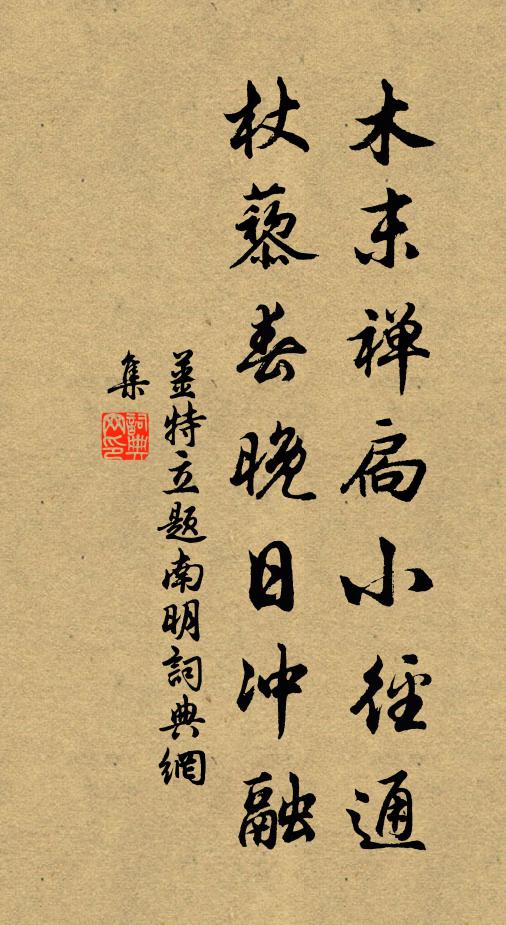 木末禅扃小径通
杖藜春晚日冲融
姜特立题南明詞典網
集
詞典
网印